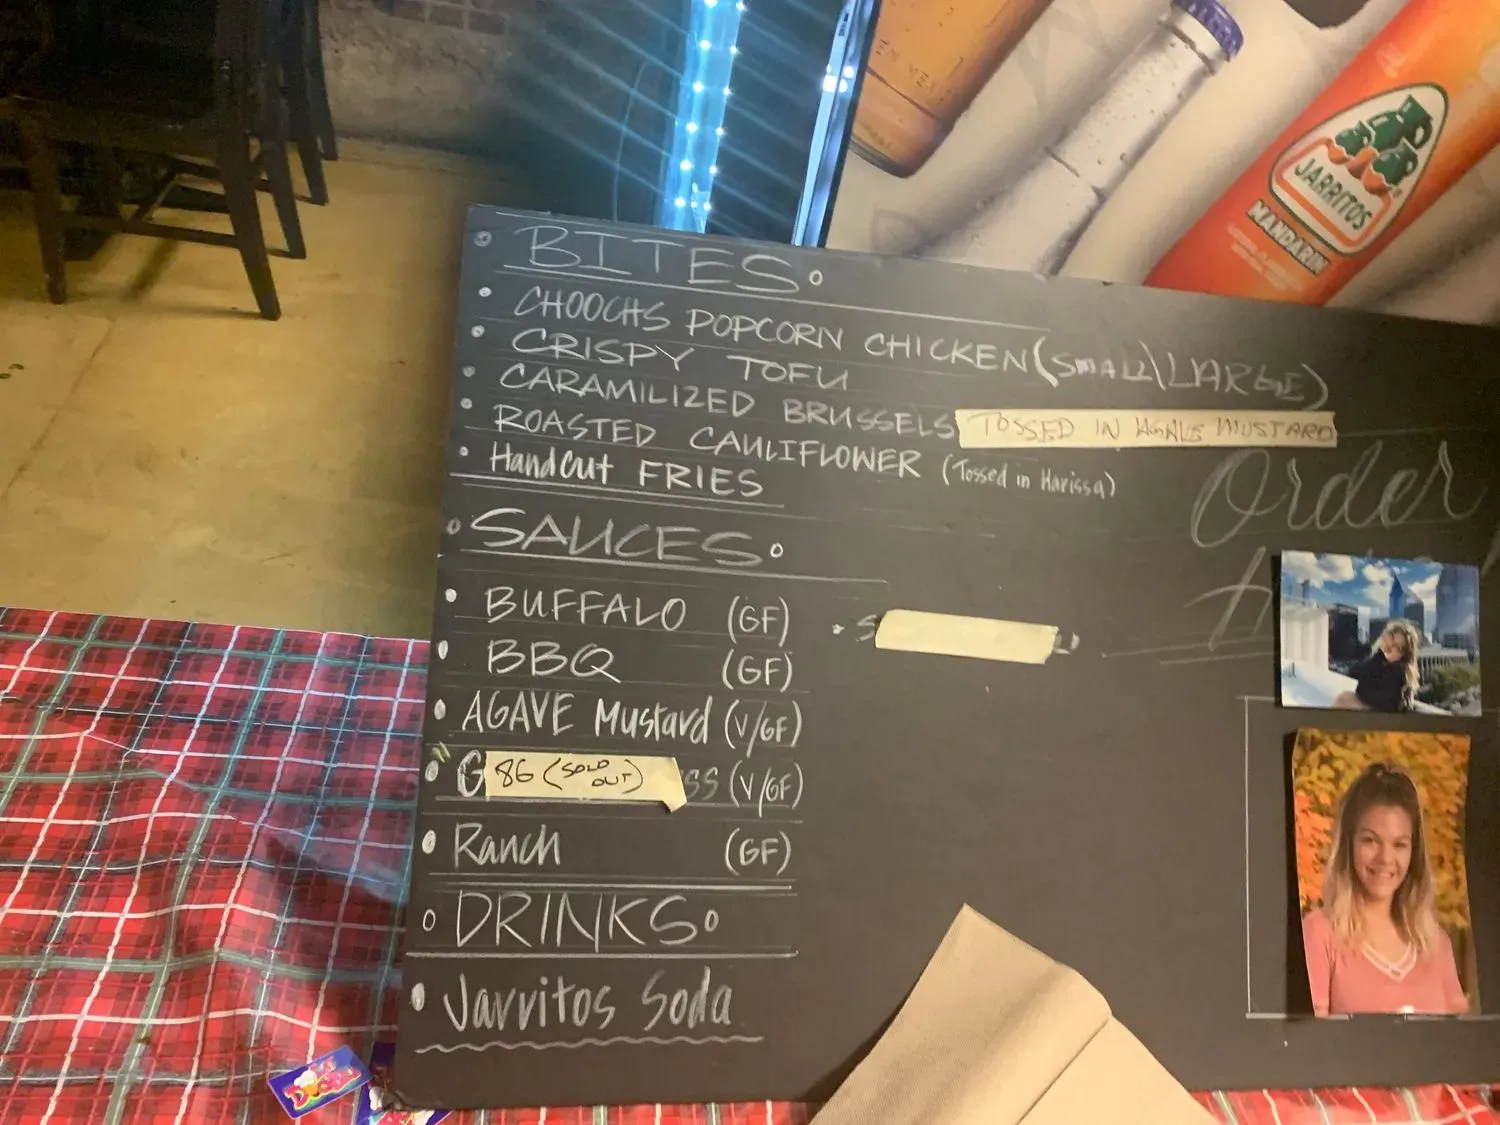 BITES
CHOOCHS POPCORN CHICKEN (SMALL\LARGE)
CRISPY TOFU
CARAMILIZED BRUSSELS TOSSED IN AGAVE MUSTARD
ROASTED CAULIFLOWER (Tossed in Harissa)
HandCut FRIES
SAUCES
BUFFALO (GF)
BBQ (GF)
AGAVE Mustard (V/GF)
G 86 (SOLD OUT) SS (V/GF)
Ranch (GF)
DRINKS
Jarritos Soda
Order
JARRITOS
MANDARIN